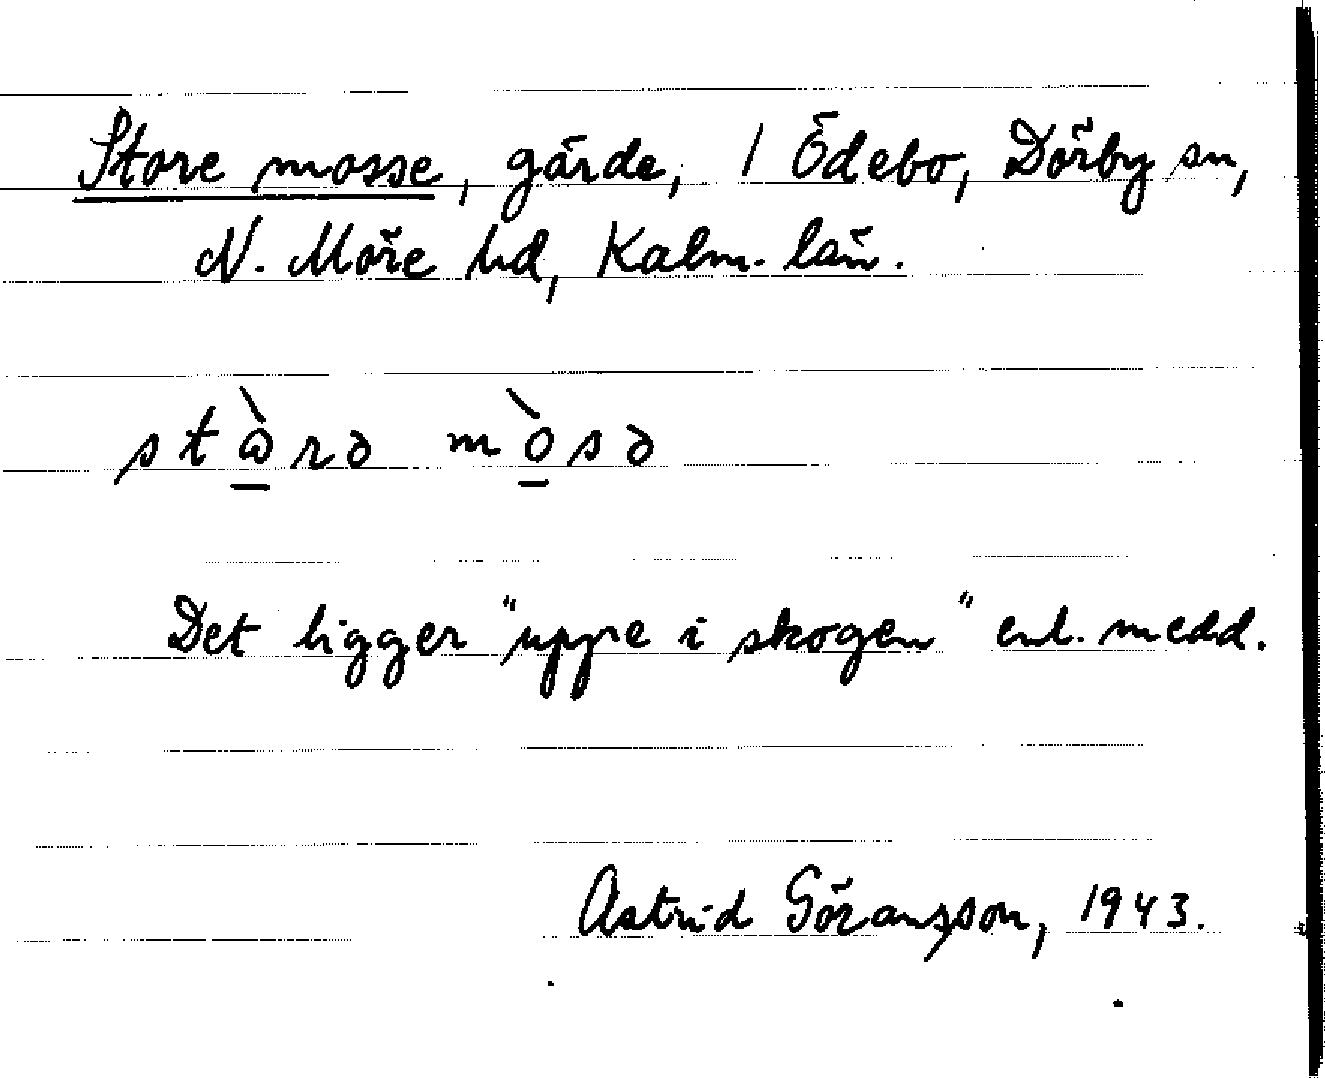 Store mosse, gärde, 1 Ödebo, Dörby sn,
N. Möre hd, Kalm. län.
stⱥ̀rə mòsə
Det ligger "uppe i skogen" enl. medd.
Astrid Göransson, 1943.